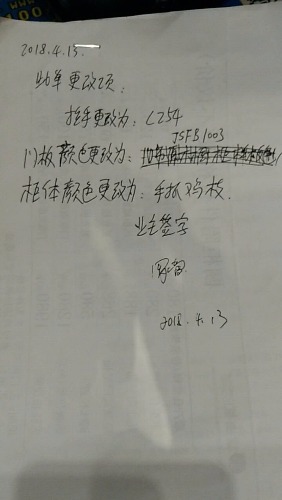 2018.4.13.
助单更改项:
拉手更改为: CZ54
JSFB1003
门板颜色更改为:
柜体颜色更改为: 手抓
业主签字
2018.4.13
100